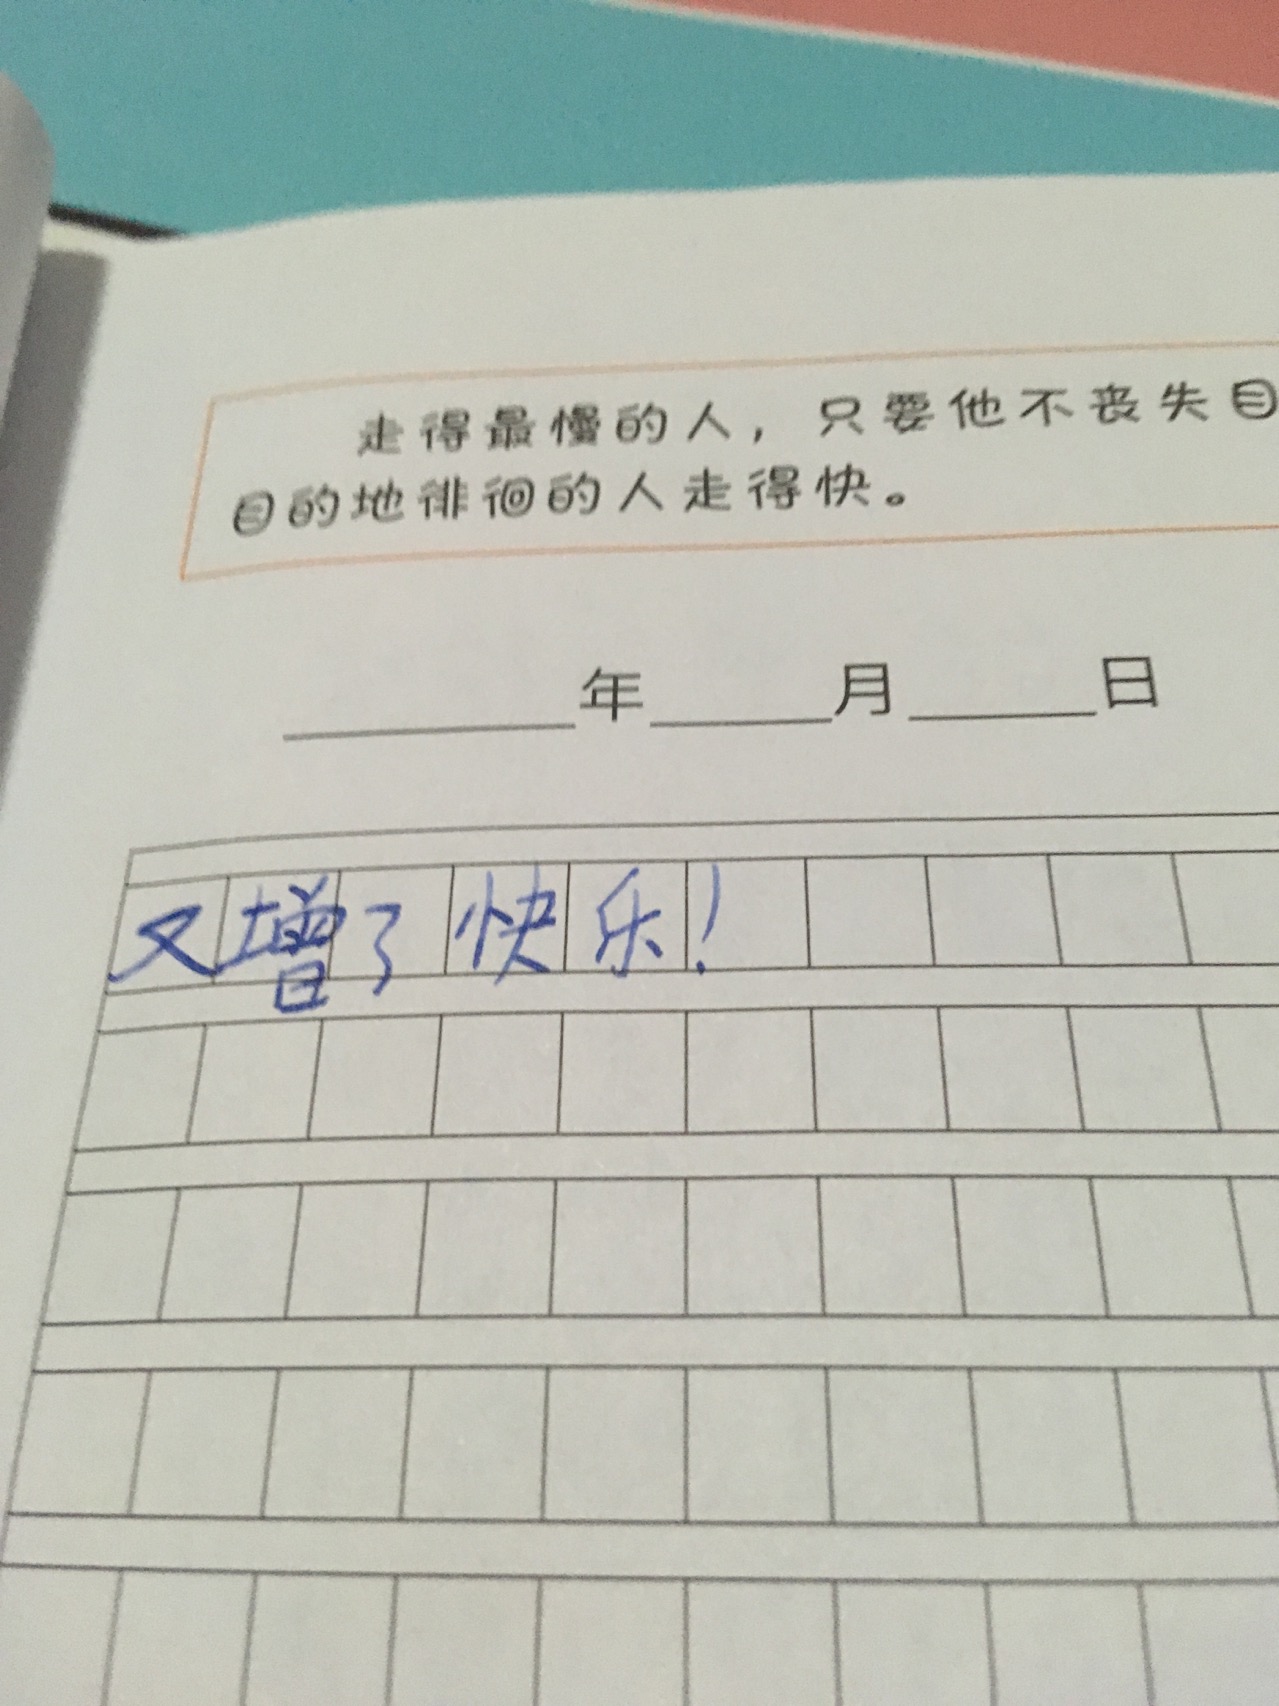 走得最慢的人，只要他不丧失目
目的地徘徊的人走得快。
年 月 日
又增了快乐！